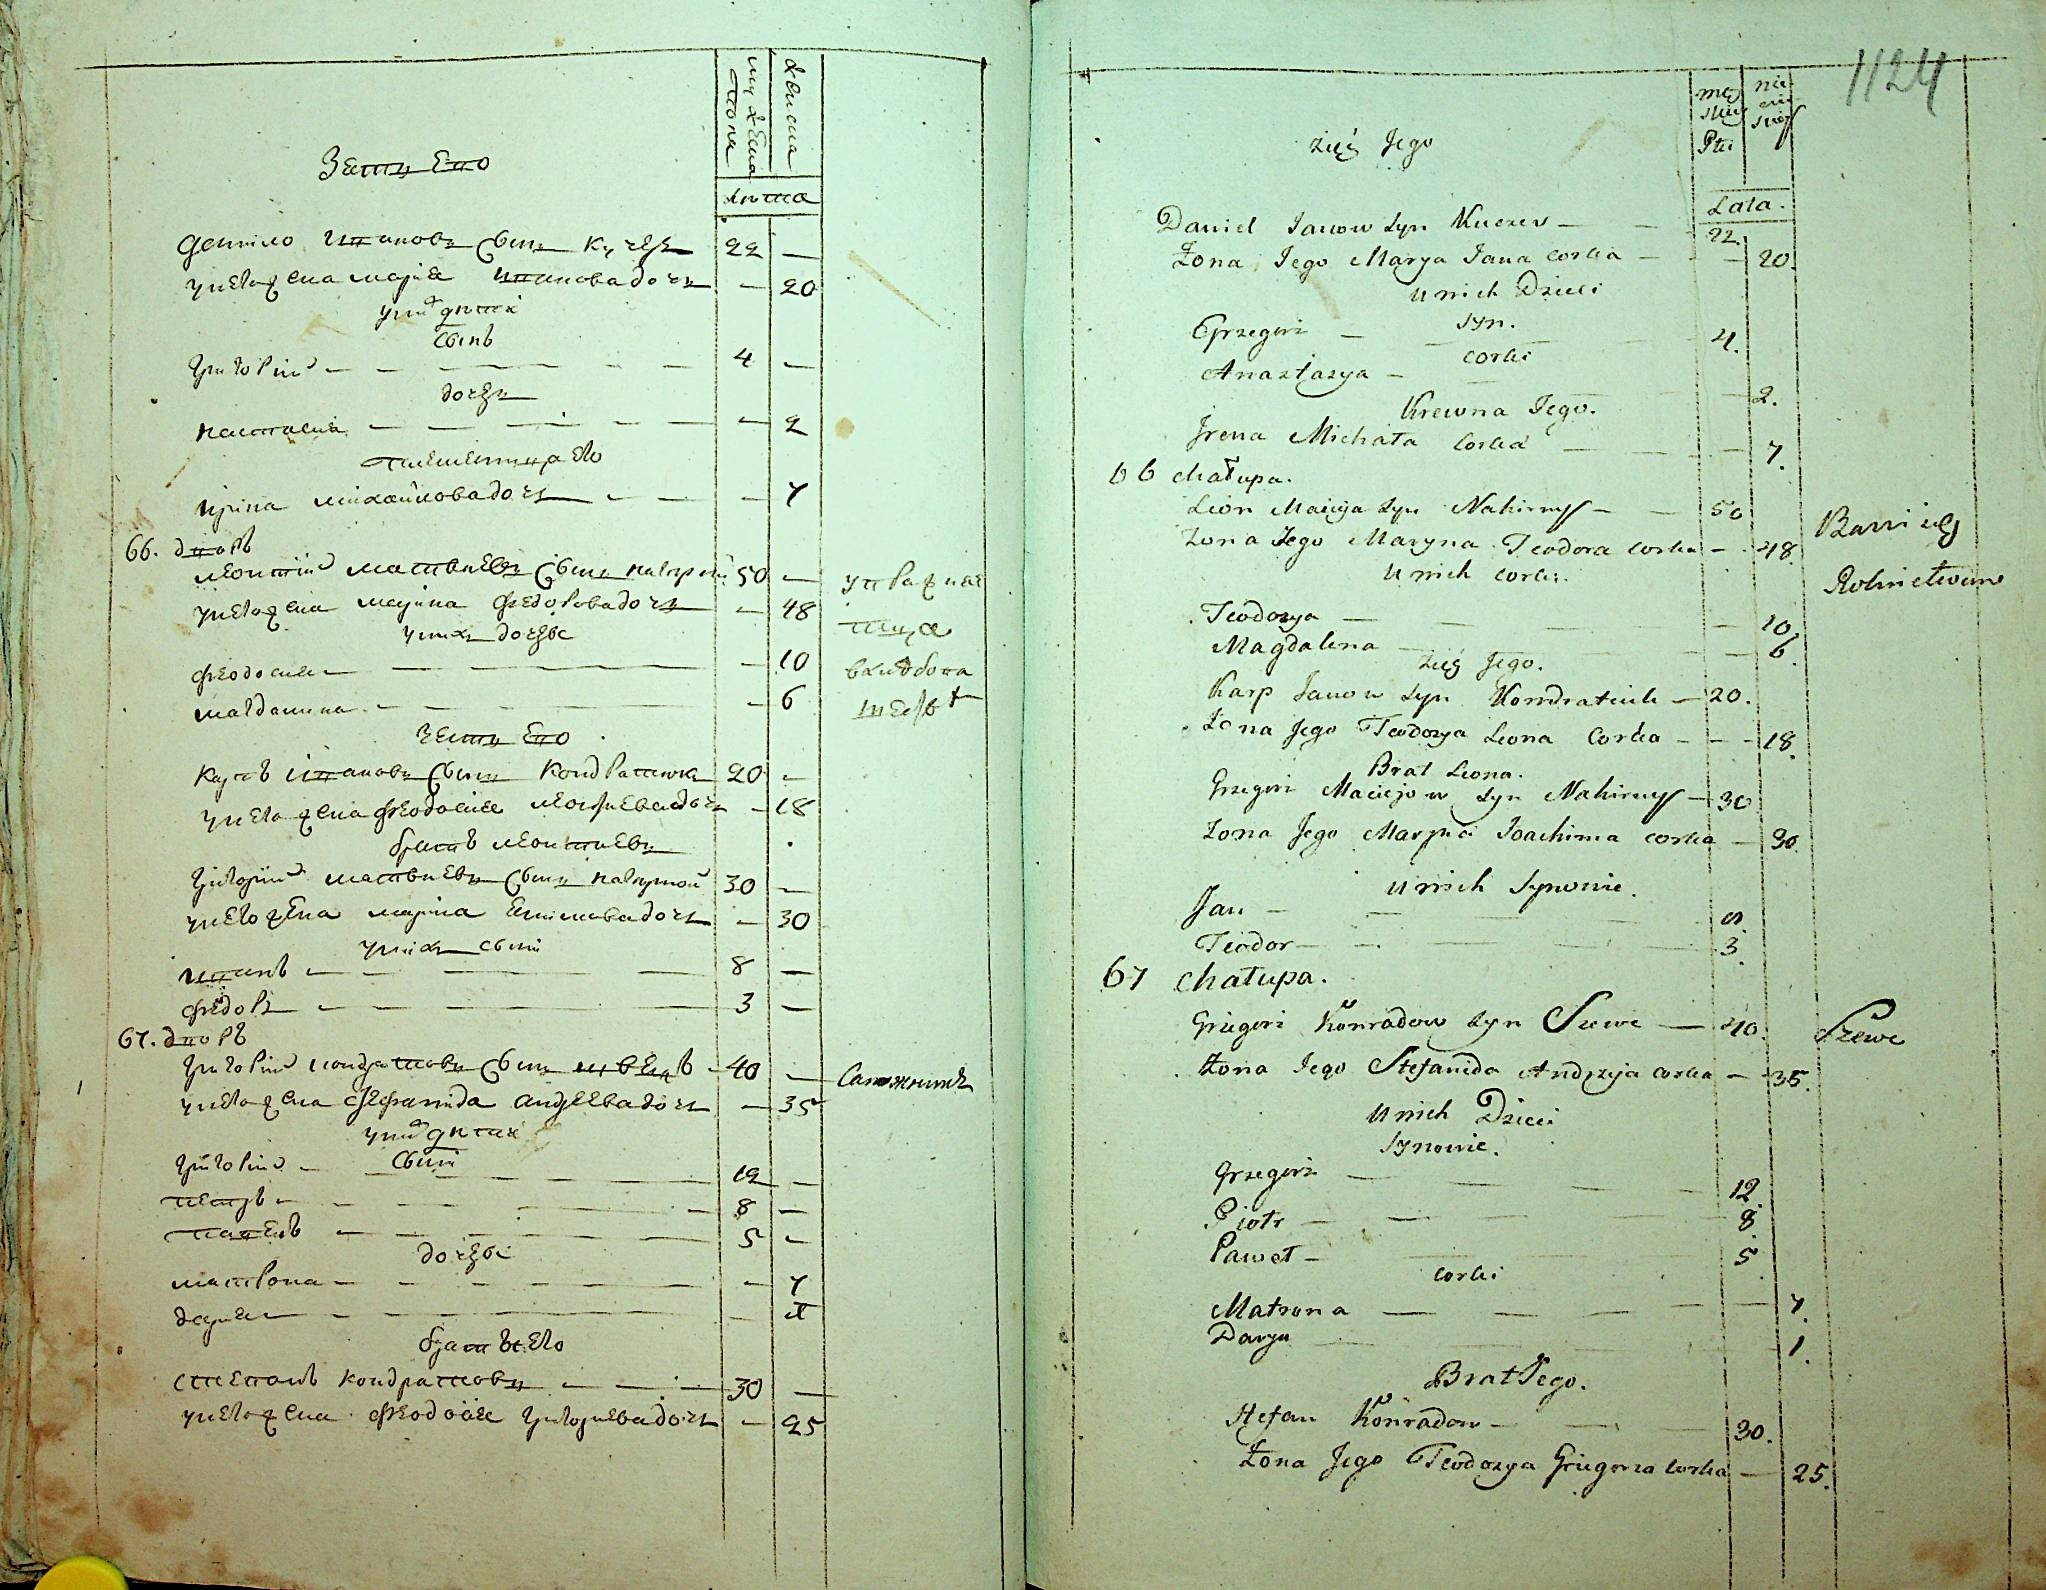 мужеска пола
женска
лѣта
Зять Его
Данило Ивановъ Сынъ Кучеръ — 22 —
унего жена марія ивановадочь — 20
унихъ дѣтей
Сынъ
григорій — 4 —
дочери
настасия — 2
племенница его
ирина михайловадочь — 7
66. дворъ
леонтій матвѣевъ Сынъ нагирный 50 —
унего жена марина Федоровадочь — 48
унихъ дочери
феодосия — 10
магдалина — 6
Зять Его
карпъ ивановъ Сынъ кондратюкъ 20 —
унего жена феодосия леонтиевадочь — 18
братъ леонтиевъ
григорій матвѣевъ Сынъ нагирной 30 —
унего жена марина Екимовадочь — 30
унихъ Сыни
иванъ — 8 —
федоръ — 3 —
67. дворъ
григорій кондратовъ Сынъ швецъ — 40 —
Сапожникъ
унего жена стефанида андреевадочь — 35
унихъ дѣтей
Сыни
григорій — 12 —
петръ — 8 —
павелъ — 5 —
дочери
матрона — 7
дария — 1
братъ его
степанъ кондратовъ — 30 —
унего жена феодосия григориевадочь — 25
1124
męz
kiey
Płci
Lata.
zięć Jego
Daniel Janow Syn Kuczer — 22.
Żona Jego Marya Jana corka — 20.
U nich Dzieci
Syn.
Grzegorz — 4.
corki
Anastazya — 2.
Krewna Jego.
Jrena Michała Corka — 7.
66 chałupa.
Leon Macieja Syn Nahirny — 50
Bawi się
Żona Jego Maryna Teodora corka — 48
Rolnictwem
U nich corki.
Teodozya — 10
Magdalena — 6.
zięć Jego.
Karp Janow Syn Kondratiuk — 20.
Żona Jego Teodozya Leona Corka — 18.
Brat Leona.
Grzegorz Maciejow Syn Nahirny — 30
Żona Jego Maryna Joachima corka — 30.
U nich Synowie.
Jan — 8.
Teodor — 3.
67 chałupa.
Grzegorz Konradow Syn Szewc — 40.
Szewc
Żona Jego Stefanida Andrzeja corka — 35.
U nich Dzieci
Synowie.
Grzegorz — 12.
Piotr — 8.
Paweł — 5
corki
Matrona — 7.
Darya — 1.
Brat Jego.
Stefan Konradow — 30.
Żona Jego Teodozya Grzegorza corka — 25.